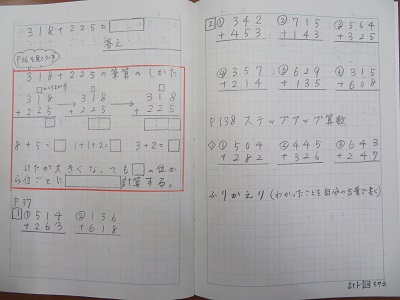 318+225=
答え
318+225の筆算のしかた
318 → 318 → 318
+225 +225 +225
8+5= 1+1+2= 3+2=
けたが大きくなっても の位か
ら位ごとに 計算する。
P37
1 ① 514 ② 136
+263 +618
2 ① 342 ② 715 ③ 564
+453 +143 +325
④ 357 ⑤ 629 ⑥ 315
+214 +135 +608
P138 ステップアップ算数
① 504 ② 445 ③ 643
+282 +326 +247
ふりかえり(わかったことを自分の言葉で書く)